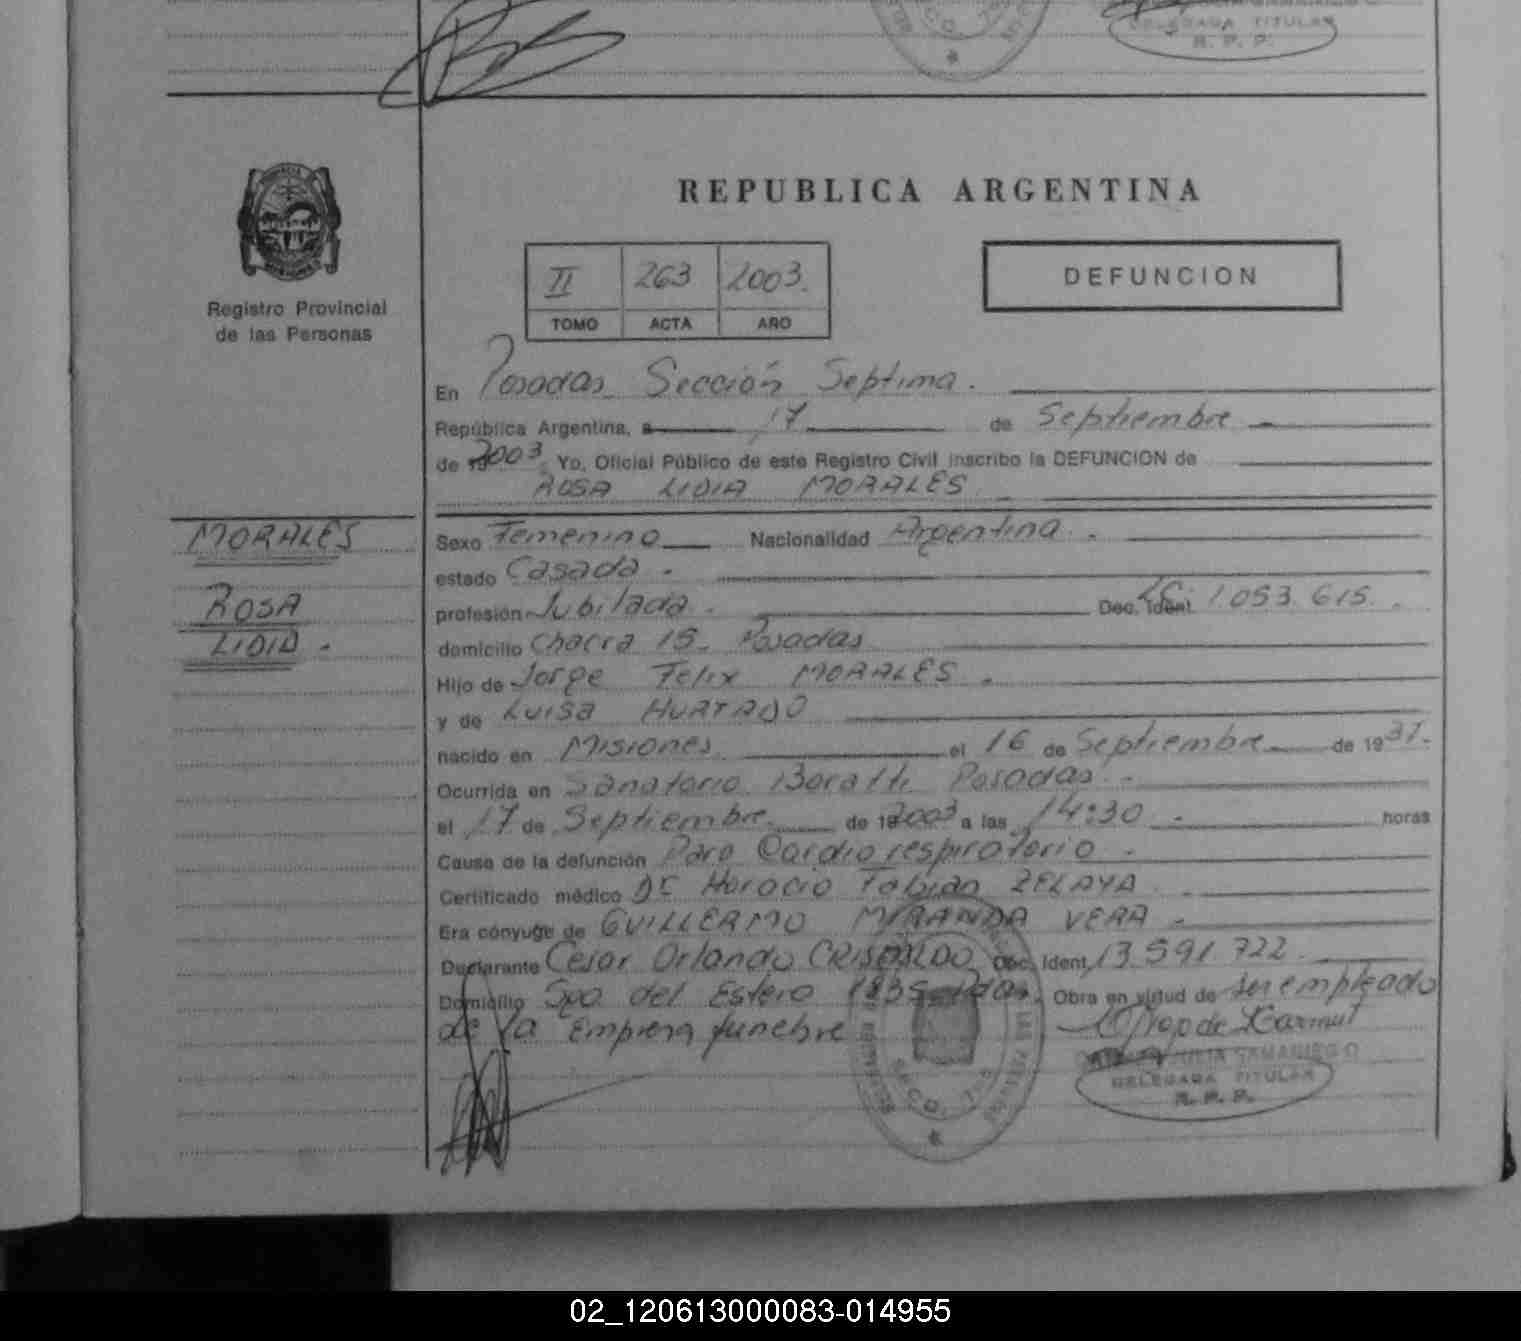 DELEGADA TITULAR
R. P. P.
REPUBLICA ARGENTINA
Registro Provincial
de las Personas
II 263 2003.
TOMO ACTA AÑO
DEFUNCION
En Posadas Sección Septima.
República Argentina, a 17 de Septiembre
de 19 2003 Yo, Oficial Público de este Registro Civil inscribo la DEFUNCION de
ROSA LIDIA MORALES
MORALES
ROSA
LIDIA.
Sexo Femenino Nacionalidad Argentina.
estado Casada.
profesión Jubilada. Doc. Ident. LC. 1.053.615.
domicilio Chacra 15. Posadas
Hijo de Jorge Felix MORALES.
y de Luisa HURTADO
nacido en Misiones el 16 de Septiembre de 1931.
Ocurrida en Sanatorio Boratti Posadas.
el 17 de Septiembre de 19 2003 a las 14:30 horas
Causa de la defunción Paro Cardiorespiratorio.
Certificado médico Dr Horacio Fabian ZELAYA
Era cónyuge de GUILLERMO MIRANDA VERA
Declarante Cesar Orlando CRISTALDO Doc. Ident. 13.591.722.
Domicilio Sgo. del Estero 1835 Pdas. Obra en virtud de ser empleado
de la Empresa funebre
JULIA SAMANIEGO
DELEGADA TITULAR
R. P. P.
02_120613000083-014955